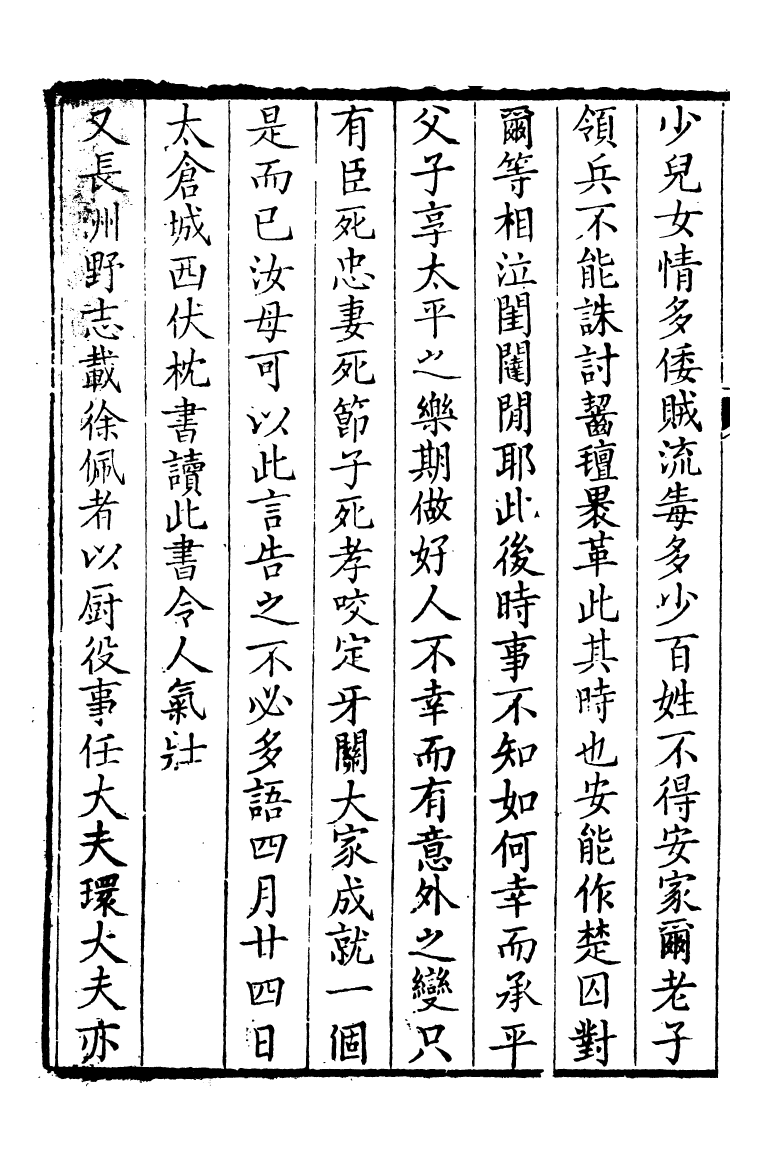 少兒女情多倭賊流毒多少百姓不得安家爾老子
領兵不能誅討齧氊裹革此其時也安能作楚囚對
爾等相泣閨闥閒耶此後時事不知如何幸而承平
父子享太平之樂期做好人不幸而有意外之變只
有臣死忠妻死節子死孝咬定牙關大家成就一個
是而已汝母可以此言告之不必多語四月廿四日
太倉城西伏枕書讀此書令人氣壯
又長洲野志載徐佩者以厨役事任大夫環大夫亦